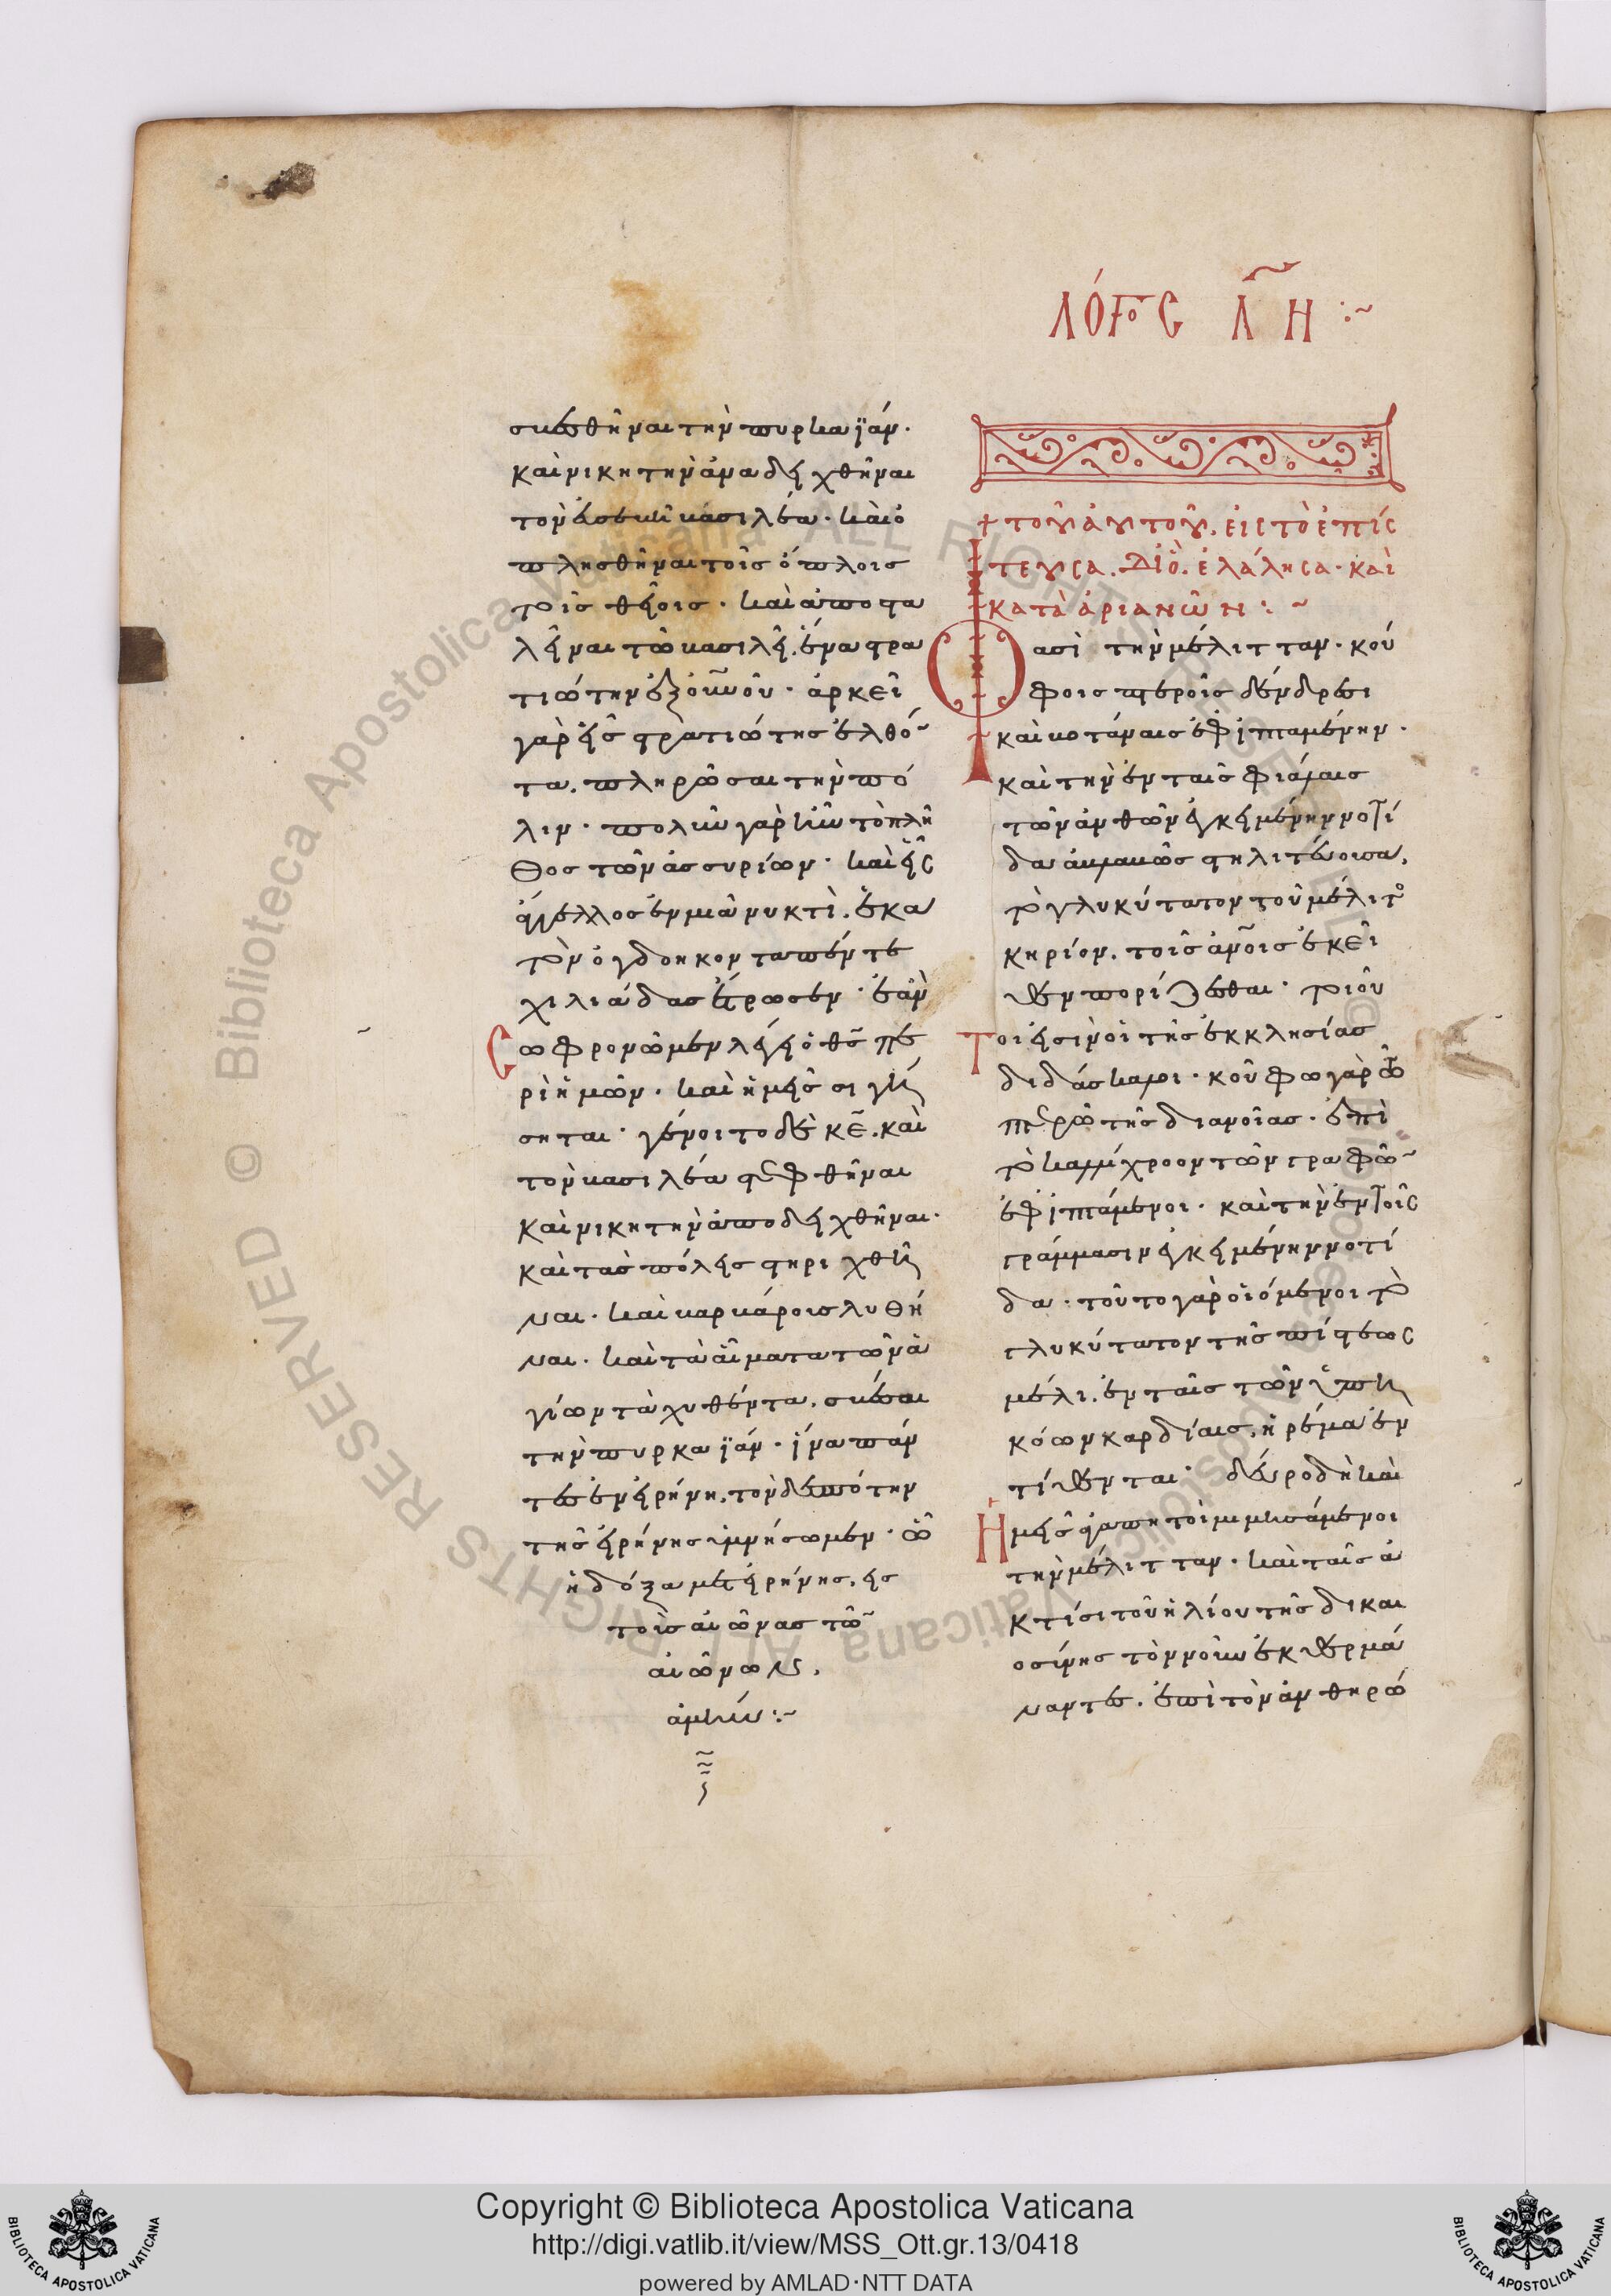 ΛΌΓΟΣ ΛΗ :~
σβεσθῆναι τὴν πυρκαϊάν·
καὶ νικητὴν ἀναδειχθῆναι
τὸν εὐσεβῆ βασιλέα· καὶ ὁ
πλισθῆναι τοῖς ὅπλοις
τοῖς θείοις· καὶ ἀποστα
λῆναι τῶ βασιλεῖ. ἕνα στρα
τιώτην ἐξ οὐνοῦ· ἀρκεῖ
γὰρ εἷς στρατιώτης ἐλθό
τα. πληρῶσαι τὴν πό
λιν· πολὺ γὰρ ἦν τὸ πλῆ
θος τῶν ἀσσυρίων· καὶ εἷς
ἄγγελλος ἐν μιᾶ νυκτὶ. ἑκα
τὸν ὀγδοηκονταπέντε
χιλιάδας ἔτρωσεν· ἐὰν
σωφρονῶμεν λέγει ὁ θς πε
ρὶ ἡμῶν· καὶ ἡμεῖς σιγή
σηται· γένοιτο δὲ κε. καὶ
τὸν βασιλέα στεφθῆναι
καὶ νικητὴν ἀποδειχθῆναι·
καὶ τὰς πόλεις στηριχθῆ
ναι· καὶ βαρβάροις λυθῆ
ναι· καὶ τὰ αἵματα τῶν ἁ
γίων τὰ χυθέντα. σβέσαι
τὴν πυρκαϊάν· ἵνα πάν
τες ἐν εἰρήνη. τὸν δεσπότην
τῆς εἰρήνης ὑμνήσωμεν· ὧ
ἡ δόξα μετ εἰρήνης. εἰς
τοὺς αἰῶνας τῶ
αἰώνων.
ἀμήν :~
+ τοῦ αὐτοῦ. εἰς τὸ ἐπίς
τευσα. Διὸ. ἐλάλησα· καὶ
κατὰ ἀριανῶν : ~
Φασὶ τὴν μέλιτταν· κού
φοις πτεροῖς δένδρεσι
καὶ βοτάναις ἐφιπταμένην·
καὶ τὴν ἐν ταῖς φιάλαις
τῶν ἀνθῶν ἐγκειμένην νοτί
δα ἀκμακῶς στηλιτεύουσα.
τὸ γλυκύτατον τοῦ μέλιτο
κηρίον. τοῖς ἀνοις ἐκεῖ
θεν πορίζεσθαι· τοιοῦ
Τοι εἰσὶν οἱ τῆς ἐκκλησίας
διδάσκαλοι· κούφω γὰρ τῶ
πτερῶ τῆς διανοίας· ἐπὶ
τὸ καλλίχροον τῶν γραφῶ
ἐφιπτάμενοι· καὶ τὴν ἐν τοῖς
γράμμασιν ἐγκειμένην νοτί
δα· τοῦτο γὰρ οἰόμενοι τὸ
γλυκύτατον τῆς πίστεως
μέλι. ἐν ταῖς τῶν ὑπη
κόων καρδίαις, ἠρέμα ἐν
τίθενται· δεῦρο δὴ καὶ
Ἡμεῖς ἀγαπητοὶ μιμησάμενοι
τὴν μέλιτταν· καὶ ταῖς ἀ
κτίσι τοῦ ἡλίου τῆς δικαι
οσύνης τὸν νοῦν ἐκθερμά
ναντες. ἐπὶ τὸν ἀνθηρῶ
Copyright © Biblioteca Apostolica Vaticana
http://digi.vatlib.it/view/MSS_Ott.gr.13/0418
powered by AMLAD·NTT DATA
BIBLIOTECA APOSTOLICA VATICANA
BIBLIOTECA APOSTOLICA VATICANA
© Biblioteca Apostolica Vaticana ALL RIGHTS RESERVED